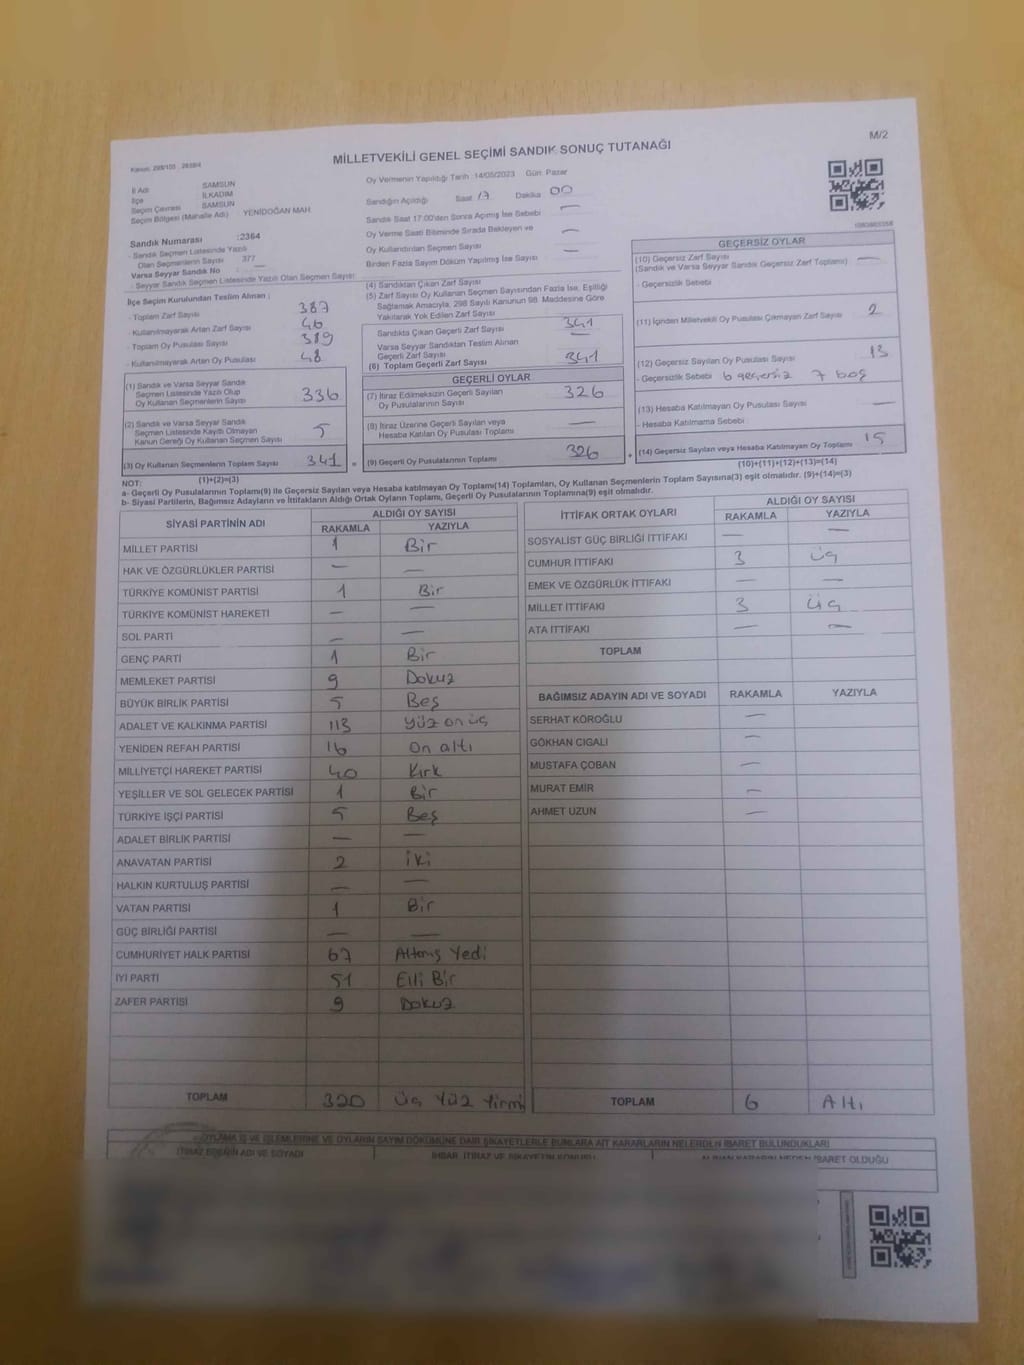 M/2
MİLLETVEKİLİ GENEL SEÇİMİ SANDIK SONUÇ TUTANAĞI
İl Adı SAMSUN
İlçe İLKADIM
Seçim Çevresi SAMSUN
Seçim Bölgesi (Mahalle Adı) YENİDOĞAN MAH.
Sandık Numarası :2364
- Sandık Seçmen Listesinde Yazılı
Olan Seçmenlerin Sayısı 377
Varsa Seyyar Sandık No —
- Seyyar Sandık Seçmen Listesinde Yazılı Olan Seçmen Sayısı:
İlçe Seçim Kurulundan Teslim Alınan :
- Toplam Zarf Sayısı 387
- Kullanılmayarak Artan Zarf Sayısı 46
- Toplam Oy Pusulası Sayısı 389
- Kullanılmayarak Artan Oy Pusulası 48
(1) Sandık ve Varsa Seyyar Sandık
Seçmen Listesinde Yazılı Olup
Oy Kullanan Seçmenlerin Sayısı 336
(2) Sandık ve Varsa Seyyar Sandık
Seçmen Listesinde Kayıtlı Olmayan
Kanun Gereği Oy Kullanan Seçmen Sayısı 5
(3) Oy Kullanan Seçmenlerin Toplam Sayısı 341 =
(1)+(2)=(3)
Oy Vermenin Yapıldığı Tarih :14/05/2023 Gün: Pazar
Sandığın Açıldığı Saat 17 Dakika 00
Sandık Saat 17:00'den Sonra Açılmış İse Sebebi —
Oy Verme Saati Bitiminde Sırada Bekleyen ve
Oy Kullandırılan Seçmen Sayısı —
Birden Fazla Sayım Döküm Yapılmış İse Sayısı —
(4) Sandıktan Çıkan Zarf Sayısı
(5) Zarf Sayısı Oy Kullanan Seçmen Sayısından Fazla İse, Eşitliği
Sağlamak Amacıyla, 298 Sayılı Kanunun 98. Maddesine Göre
Yakılarak Yok Edilen Zarf Sayısı
Sandıkta Çıkan Geçerli Zarf Sayısı 341
Varsa Seyyar Sandıktan Teslim Alınan
Geçerli Zarf Sayısı —
(6) Toplam Geçerli Zarf Sayısı 341
GEÇERLİ OYLAR
(7) İtiraz Edilmeksizin Geçerli Sayılan
Oy Pusulalarının Sayısı 326
(8) İtiraz Üzerine Geçerli Sayılan veya
Hesaba Katılan Oy Pusulası Toplamı —
(9) Geçerli Oy Pusulalarının Toplamı 326 +
GEÇERSİZ OYLAR
(10) Geçersiz Zarf Sayısı —
(Sandık ve Varsa Seyyar Sandık Geçersiz Zarf Toplamı)
- Geçersizlik Sebebi
(11) İçinden Milletvekili Oy Pusulası Çıkmayan Zarf Sayısı 2
(12) Geçersiz Sayılan Oy Pusulası Sayısı 13
- Geçersizlik Sebebi 6 geçersiz 7 boş
(13) Hesaba Katılmayan Oy Pusulası Sayısı —
- Hesaba Katılmama Sebebi
(14) Geçersiz Sayılan veya Hesaba Katılmayan Oy Toplamı 15
(10)+(11)+(12)+(13)=(14)
NOT:
a- Geçerli Oy Pusulalarının Toplamı(9) ile Geçersiz Sayılan veya Hesaba Katılmayan Oy Pusulası Toplam(14) Toplamları, Oy Kullanan Seçmenlerin Toplam Sayısına(3) eşit olmalıdır. (9)+(14)=(3)
b- Siyasi Partilerin, Bağımsız Adayların ve İttifakların Aldığı Ortak Oyların Toplamı, Geçerli Oy Pusulalarının Toplamına(9) eşit olmalıdır.
SİYASİ PARTİNİN ADI ALDIĞI OY SAYISI
RAKAMLA YAZIYLA
MİLLET PARTİSİ 1 Bir
HAK VE ÖZGÜRLÜKLER PARTİSİ — —
TÜRKİYE KOMÜNİST PARTİSİ 1 Bir
TÜRKİYE KOMÜNİST HAREKETİ — —
SOL PARTİ — —
GENÇ PARTİ 1 Bir
MEMLEKET PARTİSİ 9 Dokuz
BÜYÜK BİRLİK PARTİSİ 5 Beş
ADALET VE KALKINMA PARTİSİ 113 Yüz on üç
YENİDEN REFAH PARTİSİ 16 On altı
MİLLİYETÇİ HAREKET PARTİSİ 40 Kırk
YEŞİLLER VE SOL GELECEK PARTİSİ 1 Bir
TÜRKİYE İŞÇİ PARTİSİ 5 Beş
ADALET BİRLİK PARTİSİ — —
ANAVATAN PARTİSİ 2 İki
HALKIN KURTULUŞ PARTİSİ — —
VATAN PARTİSİ 1 Bir
GÜÇ BİRLİĞİ PARTİSİ — —
CUMHURİYET HALK PARTİSİ 67 Altmış Yedi
İYİ PARTİ 51 Elli Bir
ZAFER PARTİSİ 9 Dokuz
TOPLAM 320 Üç Yüz Yirmi
İTTİFAK ORTAK OYLARI ALDIĞI OY SAYISI
RAKAMLA YAZIYLA
SOSYALİST GÜÇ BİRLİĞİ İTTİFAKI — —
CUMHUR İTTİFAKI 3 Üç
EMEK VE ÖZGÜRLÜK İTTİFAKI — —
MİLLET İTTİFAKI 3 Üç
ATA İTTİFAKI — —
TOPLAM
BAĞIMSIZ ADAYIN ADI VE SOYADI RAKAMLA YAZIYLA
SERHAT KÖROĞLU —
GÖKHAN CIGALI —
MUSTAFA ÇOBAN —
MURAT EMİR —
AHMET UZUN —
TOPLAM 6 Altı
OYLAMA İŞ VE İŞLEMLERİNE VE OYLARIN SAYIM DÖKÜMÜNE DAİR ŞİKAYETLERLE BUNLARA AİT KARARLARIN NELERDEN İBARET BULUNDUKLARI
İTİRAZ EDENİN ADI VE SOYADI
İHBAR, İTİRAZ VE ŞİKAYETİN KONUSU
ALINAN KARARIN NEDEN İBARET OLDUĞU